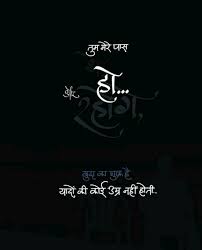 तुम मेरे पास
हो...
और रहोगे,
खुदा का शुक्र है
यादों की कोई उम्र नहीं होती.